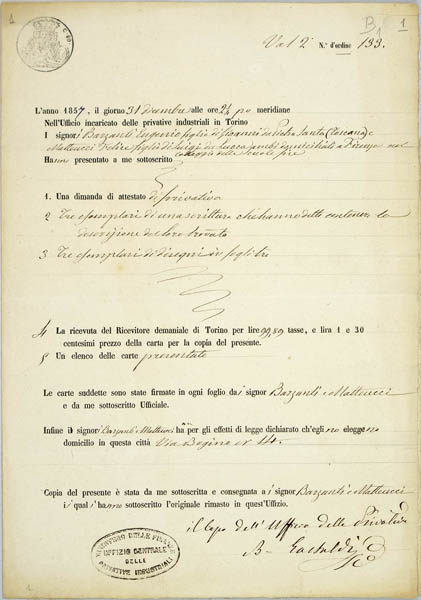 1
B 1 1
Vol 2 N.° d'ordine 133.
L'anno 1857, il giorno 31 dicembre alle ore 2 1/4 po meridiane
Nell'Ufficio incaricato delle privative industriali in Torino
I signori Barzanti Eugenio figlio di Giovanni da Pietra Santa (Toscana) e
Matteucci Felice figlio di Luigi da Lucca ambi domiciliati a Firenze
collegio delle Scuole Pie
Hanno presentato a me sottoscritto
1. Una dimanda di attestato di privativa
2 Tre esemplari di una scrittura che hanno detto contenere la
descrizione del loro trovato
3 Tre esemplari di disegni in fogli tre
4 La ricevuta del Ricevitore demaniale di Torino per lire tasse, e lira 1 e 30
centesimi prezzo della carta per la copia del presente.
5 Un elenco delle carte presentate
Le carte suddette sono state firmate in ogni foglio dai signor Barzanti e Matteucci
e da me sottoscritto Ufficiale.
Infine i signori Barzanti e Matteucci han per gli effetti di legge dichiarato ch'eglino eleggono
domicilio in questa città Via Bogino n° 14.
Copia del presente è stata da me sottoscritta e consegnata ai signor Barzanti e Matteucci
i quali hanno sottoscritto l'originale rimasto in quest'Uffizio.
il Capo dell'Ufficio delle Privative
B. Gastaldi
MINISTERO DELLE FINANZE
UFFIZIO CENTRALE
DELLE
PRIVATIVE INDUSTRIALI
1